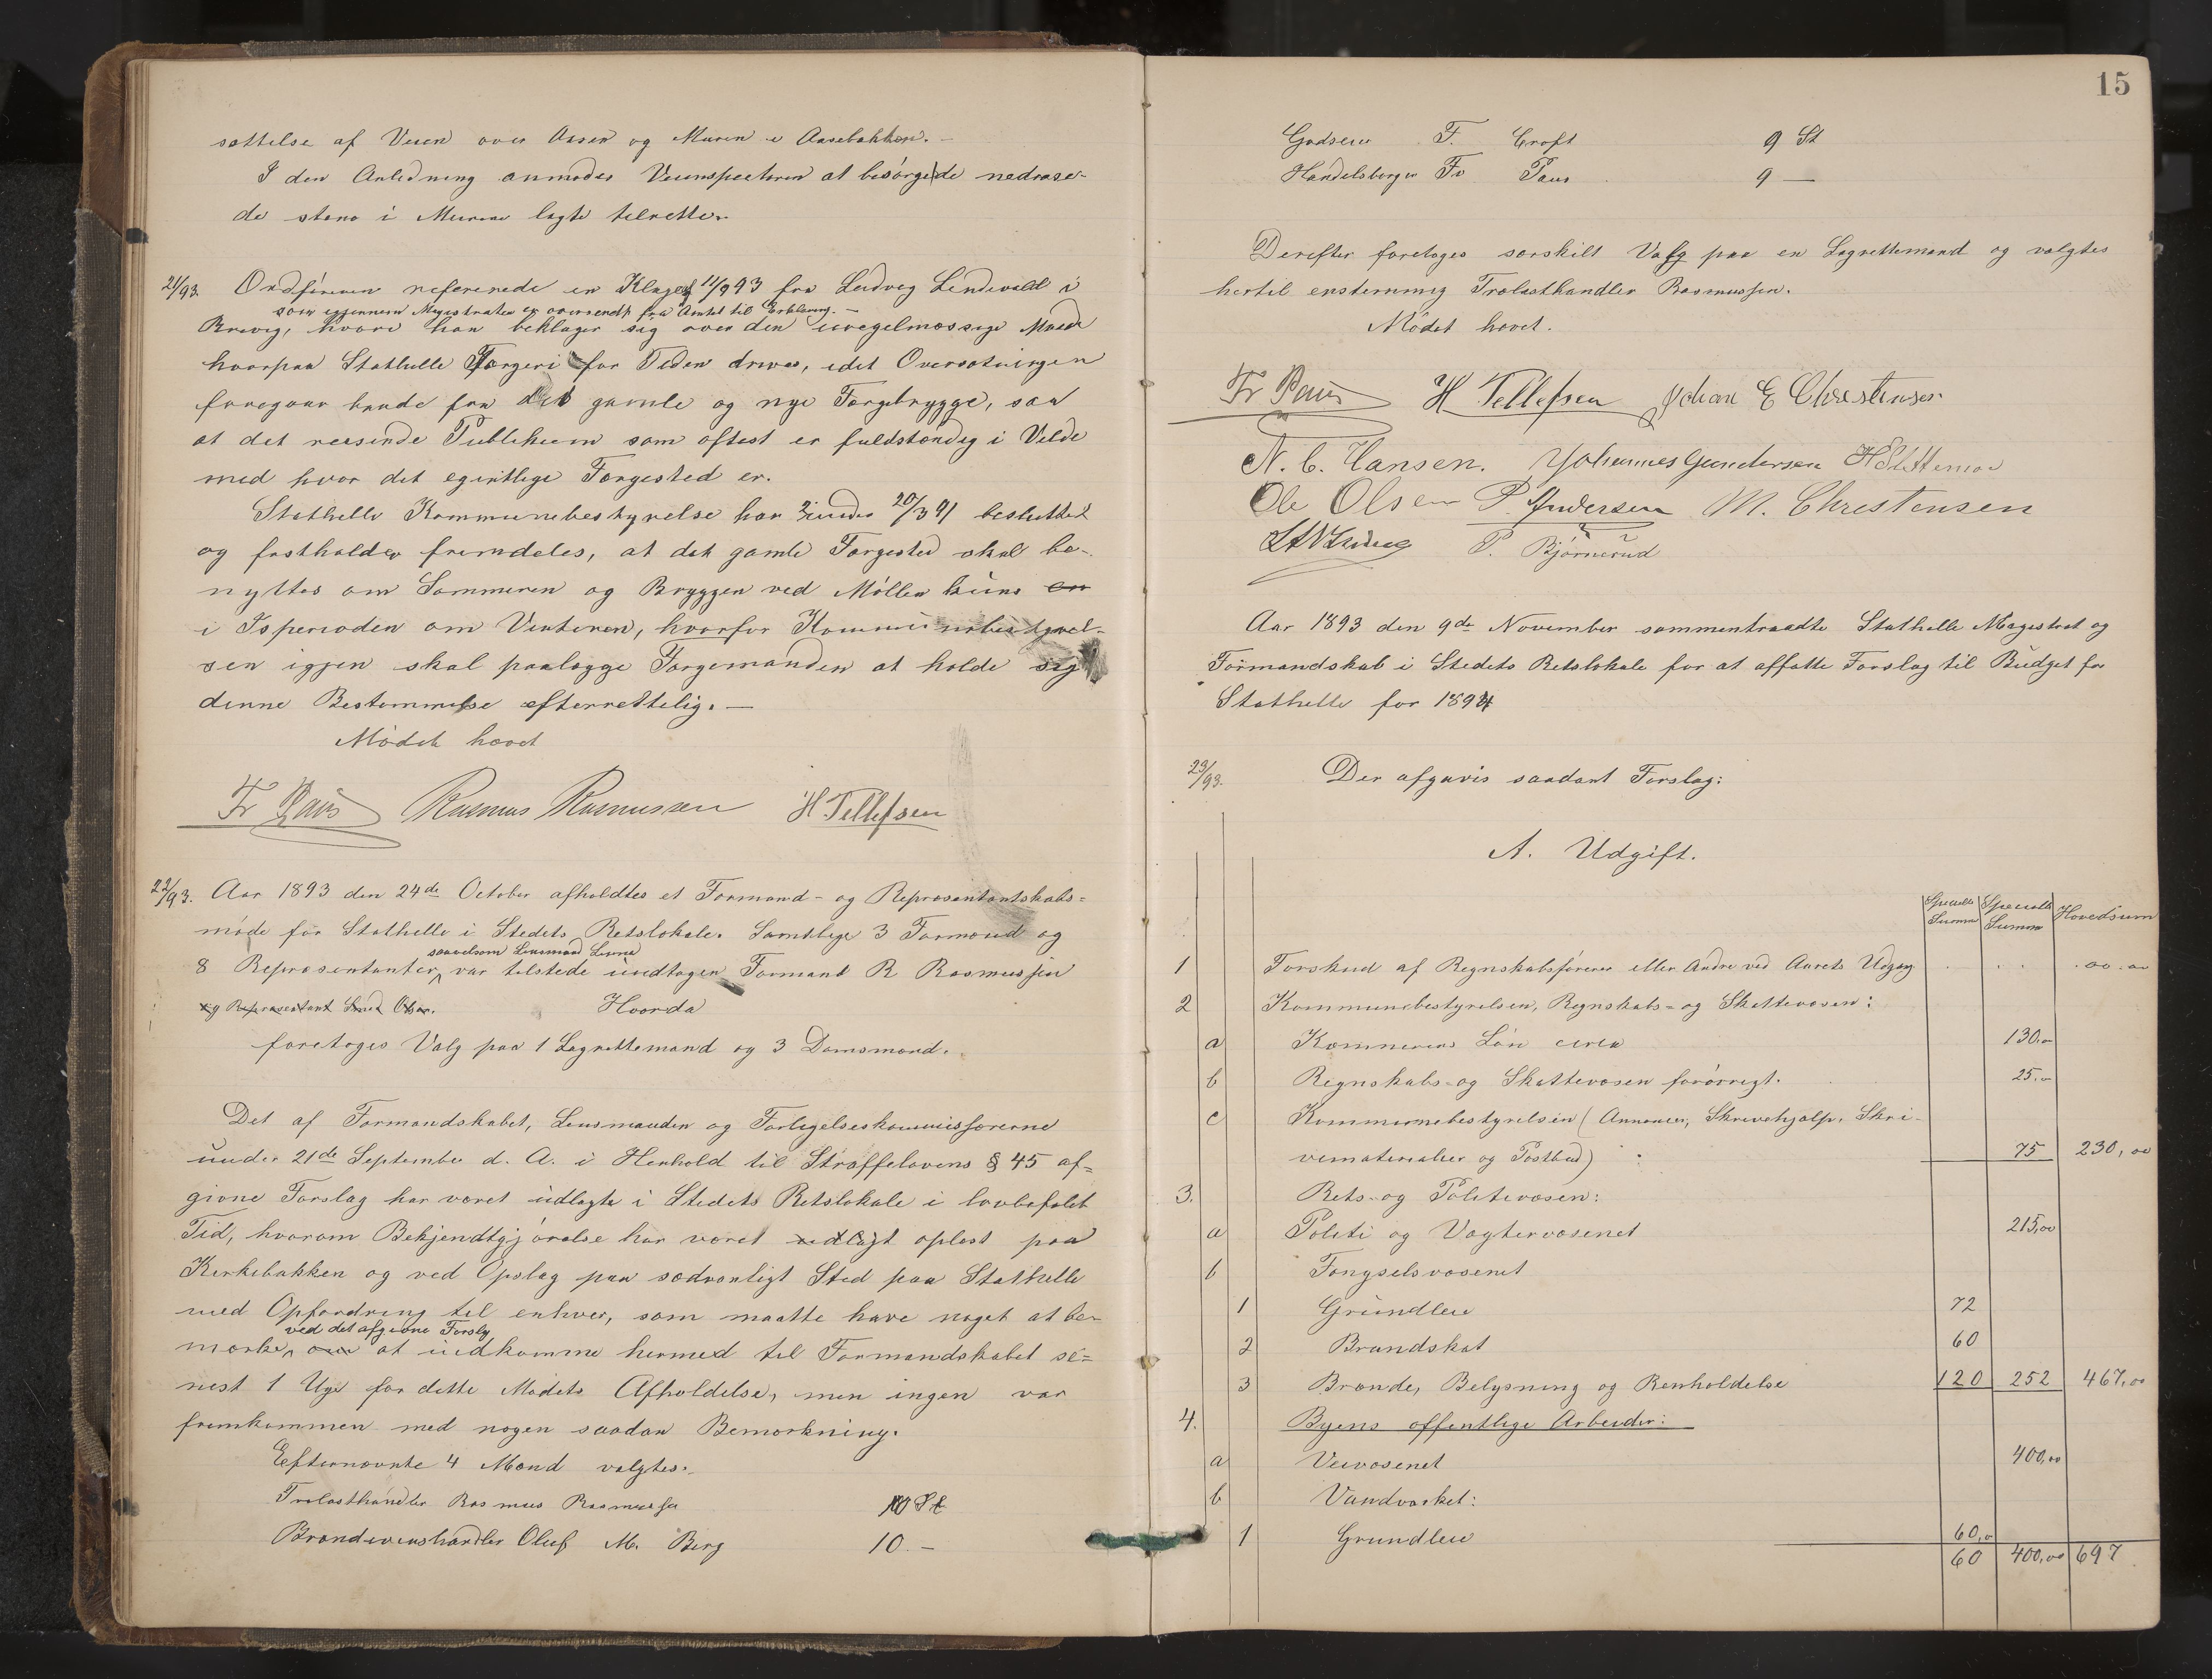 sættelse af Veien over Aasen og Muren i Aasebakken. —
I den Anledning anmodes Veiinspectøren at besørge de nedrase-
de stene i Muren lagte tilrette.
21/93. Ordføreren refererede en Klage af 11/9 93 fra Ludvig Lindevald i
som igjennem Magistraten er oversendt fra Amtet til Erklæring. —
Brevig, hvori han beklager sig over den uregelmæssige Maade
hvorpaa Stathelle Færgeri for Tiden drives, idet Oversætningen
foregaar baade fra det gamle og nye Færgebrygge, saa
at det reisende Publikum som oftest er fuldstændig i Vilde
med hvor det egentlige Færgested er.
Stathelle Kommunebestyrelse har under 20/3 91 besluttet
og fastholder fremdeles, at det gamle Færgested skal be-
nyttes om Sommeren og Bryggen ved Møllen kuns en
i Isperioden om Vinteren, hvorfor Kommunebestyrel-
sen igjen skal paalægge Færgemanden at holde sig
denne Bestemmelse efterrettelig. —
Mødet hævet
Fr Paus Rasmus Rasmussen H Tellefsen
22/93. Aar 1893 den 24de October afholdtes et Formand- og Repræsentantskabs=
møde for Stathelle i Stedets Retslokale. Samtlige 3 Formænd og
saavelsom Lensmand
8 Repræsentanter, var tilstede undtagen Formand R Rasmussen
og Repræsentant Olsen. Hvorda
foretoges Valg paa 1 Lagrettemand og 3 Domsmænd.
Det af Formandskabet, Lensmanden og Forligelseskommissærerne
under 21de September d. A. i Henhold til Straffelovens § 45 af=
givne Forslag har været udlagte i Stedets Retslokale i lovbefalet
Tid, hvorom Bekjendtgjørelse har været udlagt oplæst paa
Kirkebakken og ved Opslag paa sædvanligt Sted paa Stathelle
med Opfordring til enhver, som maatte have noget at be-
ved det afgivne Forslag
mærke, om at indkomme hermed til Formandskabet se=
nest 1 Uge før dette Mødets Afholdelse, men ingen var
fremkommen med nogen saadan Bemærkning.
Efternævnte 4 Mænd valgtes:
Trælasthandler Rasmus Rasmussen 10 St
Brændevinshandler Oluf M. Berg 10 —
15
Godseier F. Croft 9 St
Handelsborger Fr Paus 9 —
Derefter foretoges særskilt Valg paa en Lagrettemand og valgtes
hertil enstemmig Trælasthandler Rasmussen.
Mødet hævet.
Fr Paus H Tellefsen Johan E Christensen
N. C. Hansen. Johannes Gundersen
Ole Olsen P. Andersen M. Christensen
P. Bjørnerud
Aar 1893 den 9de November sammentraadte Stathelle Magistrat og
Formandskab i Stedets Retslokale for at affatte Forslag til Budget for
Stathelle for 1894
23/93. Der afgaves saadant Forslag:
A. Udgift.
Specielle Summa Specielle Summa Hovedsum
1 Forskud af Regnskabsføreren eller Andre ved Aarets Udgang . . . . 00.00
2 Kommunebestyrelsen, Regnskabs- og Skattevæsen:
a Kæmnerens Løn circa 130.00
b Regnskabs- og Skattevæsen forøvrigt. 25.00
c Kommunebestyrelsen (Annoncer, Skrivehjælp, Skri-
vematerialier og Postbud) : 75 230,00
3. Rets- og Politivæsen:
a Politi og Vægtervæsenet 215,00
b Fængselsvæsenet
1 Grundleie 72
2 Brandskat 60
3 Brænde, Belysning og Renholdelse 120 252 467,00
4. Byens offentlige Arbeider:
a Veivæsenet 400,00
b Vandværket:
1 Grundleie 60,0
60 400,00 697